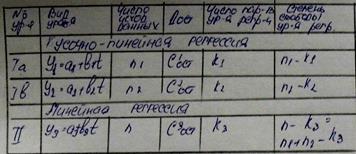 № ур-я Вид ур-я Число исход данных Dост Число пар-в ур-я регр-и Степень свободы ур-я регр.
Кусочно-линейная регрессия
Iа y1=a1+b1t n1 C1ост k1 n1-k1
Iв y2=a2+b2t n2 C2ост k2 n2-k2
Линейная регрессия
II y3=a3+b3t n C3ост k3 n-k3=
n1+n2-k3